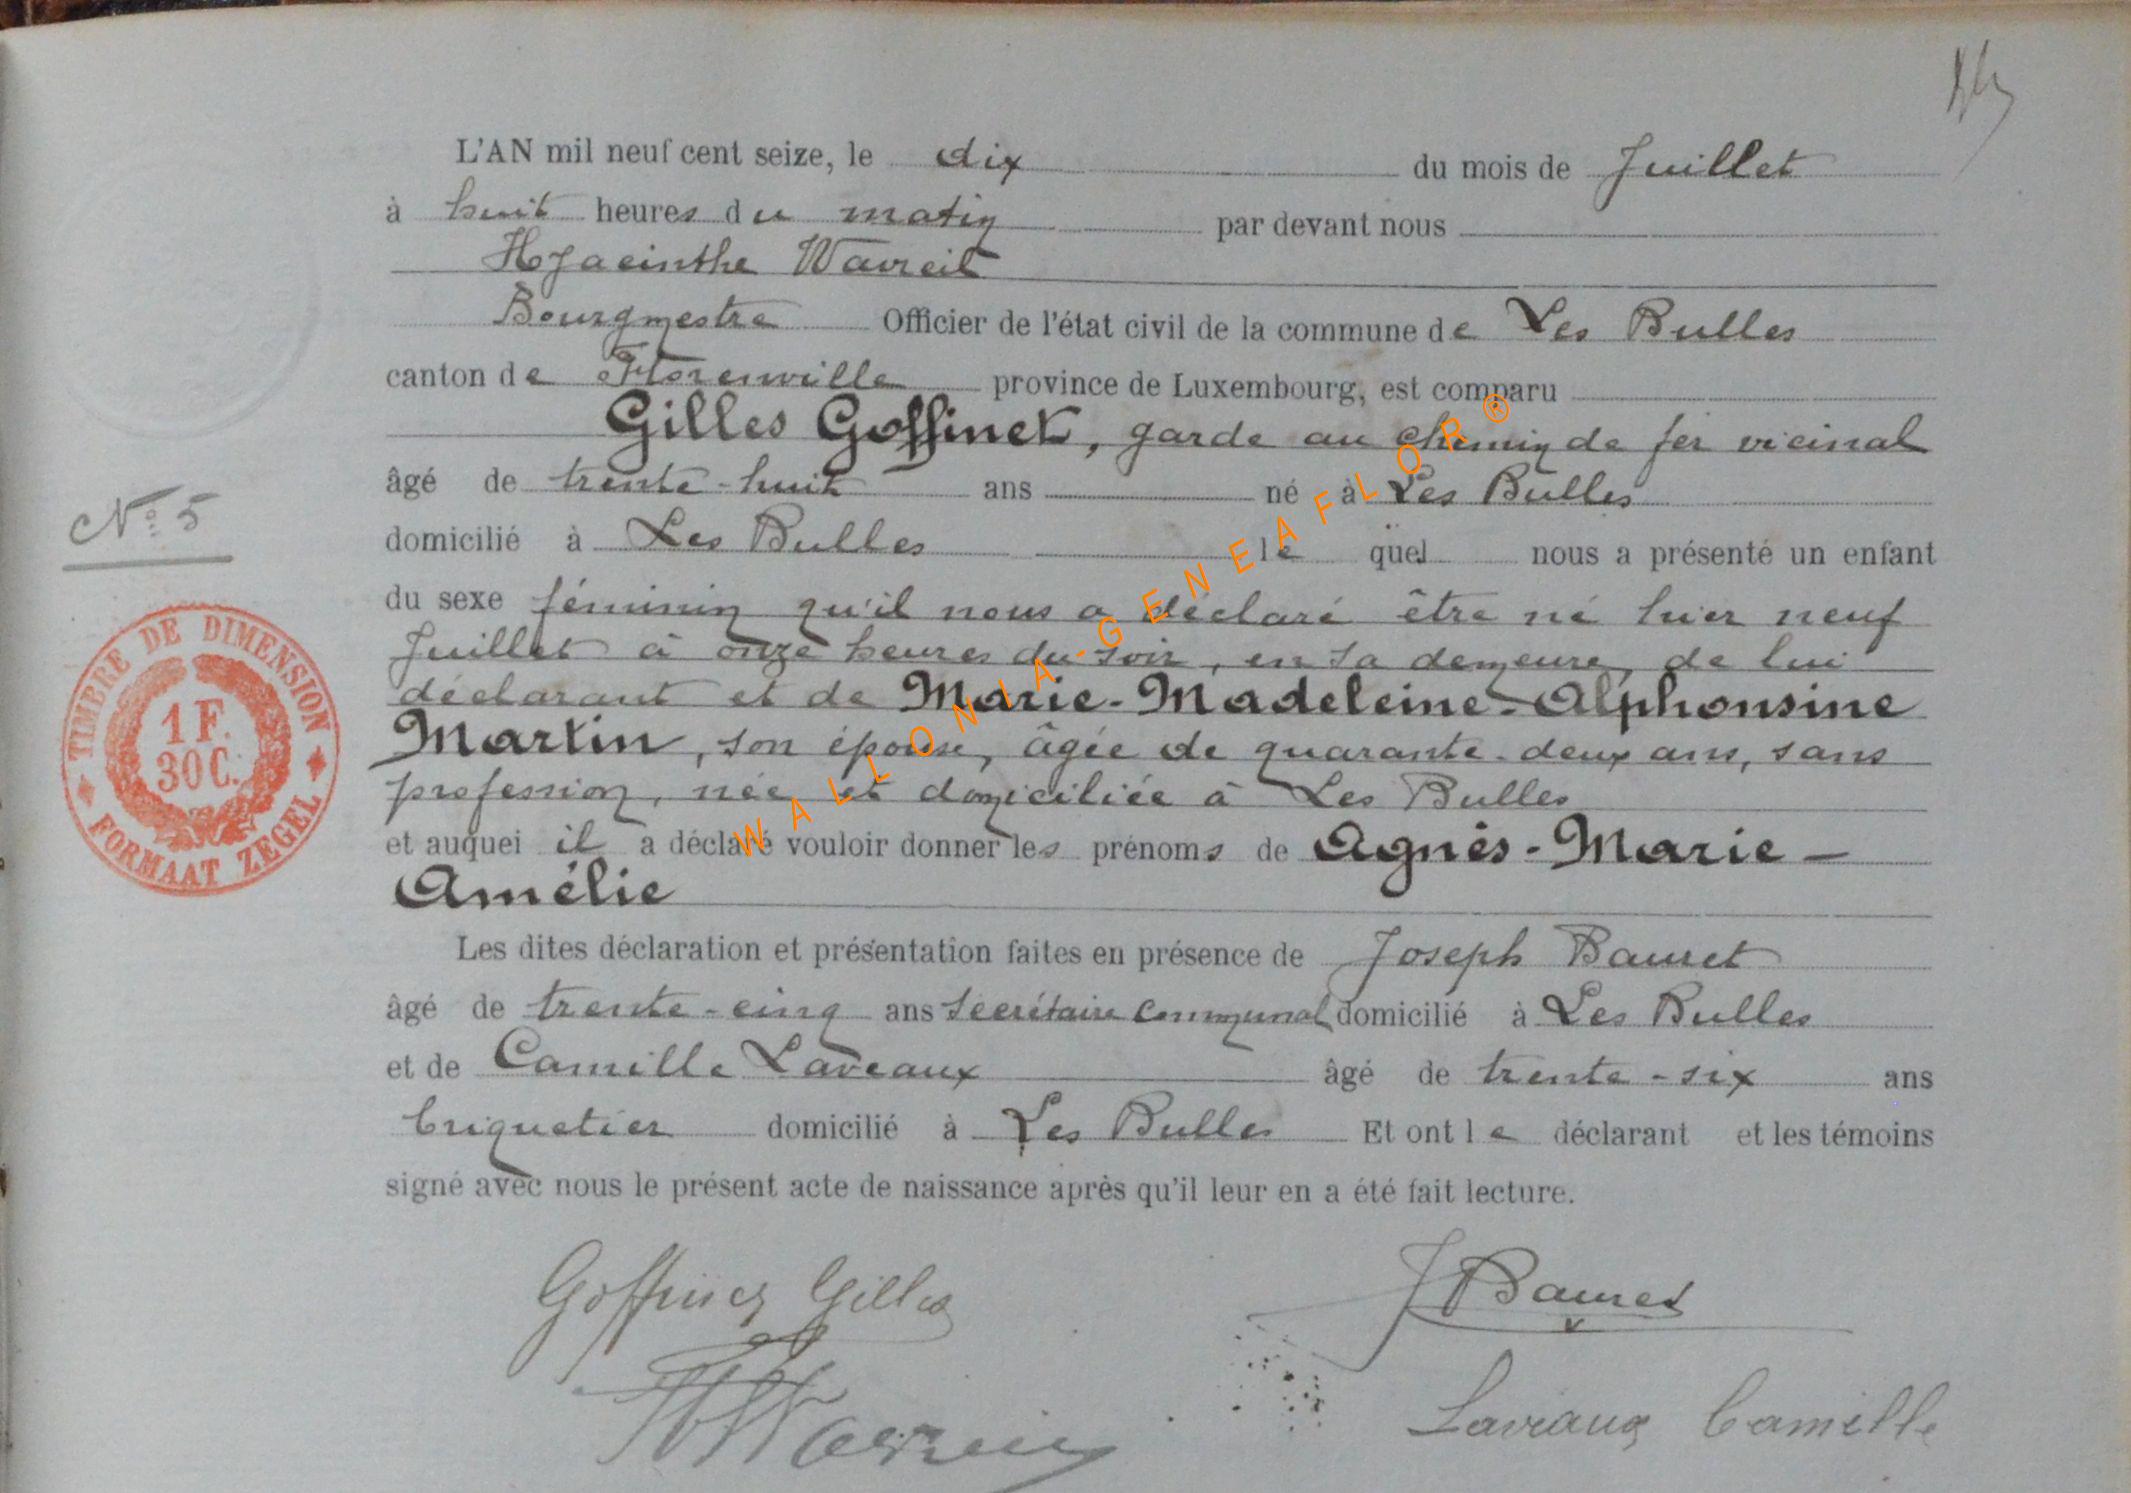 L'AN mil neuf cent seize, le dix du mois de Juillet
à huit heures du matin par devant nous
Hyacinthe Wavreil
Bourgmestre Officier de l'état civil de la commune de Les Bulles
canton de Florenville province de Luxembourg, est comparu
Gilles Goffinet, garde au chemin de fer vicinal
âgé de trente-huit ans né à Les Bulles
N° 5
domicilié à Les Bulles le quel nous a présenté un enfant
du sexe féminin qu'il nous a déclaré être né hier neuf
Juillet à onze heures du soir, en sa demeure, de lui
déclarant et de Marie-Madeleine-Alphonsine
Martin, son épouse, âgée de quarante-deux ans, sans
profession, née et domiciliée à Les Bulles
et auquel il a déclaré vouloir donner les prénoms de Agnès-Marie-
Amélie
TIMBRE DE DIMENSION
1 F.
30 C.
FORMAAT ZEGEL
Les dites déclaration et présentation faites en présence de Joseph Bauret
âgé de trente-cinq ans secrétaire communal domicilié à Les Bulles
et de Camille Laveaux âgé de trente-six ans
briquetier domicilié à Les Bulles Et ont le déclarant et les témoins
signé avec nous le présent acte de naissance après qu'il leur en a été fait lecture.
Goffinet Gilles
J Bauret
Laveaux Camille
WALLONIA-GENEAFLOR®